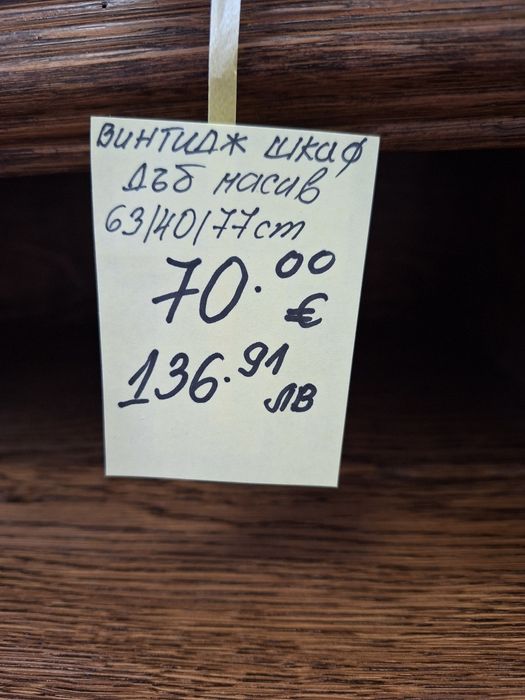 Винтидж шкаф
дъб масив
63/40/77 cm
70.00
€
136.91
лв